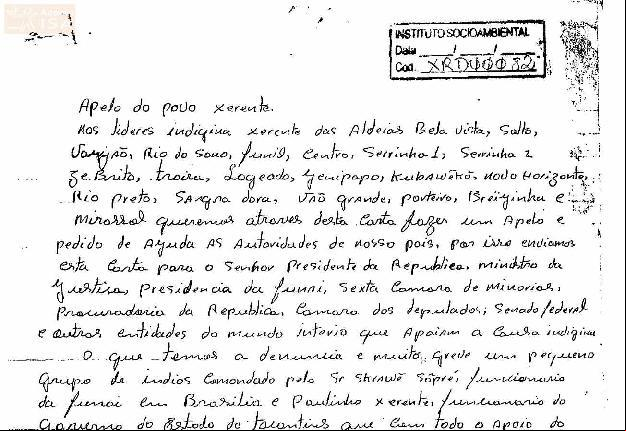 INSTITUTO SOCIOAMBIENTAL
Data ___/___/___
Cod. XRD00032
Apelo do povo xerente.
Nos lideres indigina xerente das Aldeias Bela Vista, Salto,
Rio do Sono, funil, Centro, Serrinha 1, Serrinha 2
Ze Brito, traira, Logeado, Genipapo, novo Horizonte,
Rio preto, Sangra doro, Vão grande, porteiro, Brejinho e
Mirassol queremos atraves desta Carta fazer um Apelo e
pedido de Ajuda As Autoridades de nosso pais, por isso enviamos
esta Carta para o Senhor Presidente da Republica, ministro da
Justisa, Presidencia da funai, Sexta Camara de Minorias,
Procuradoria da Republica, Camara dos deputados; Senado federal
e outras entidades do mundo interio que Apoiam a Causa indigina
O que temos a denuncia e muito grave um pequeno
Grupo de indios Comandado pelo Sr funcionario
da funai em Brasilia e Paulinho xerente, funcionario do
Governo do Estado do tocantins que tem todo o Apoio do